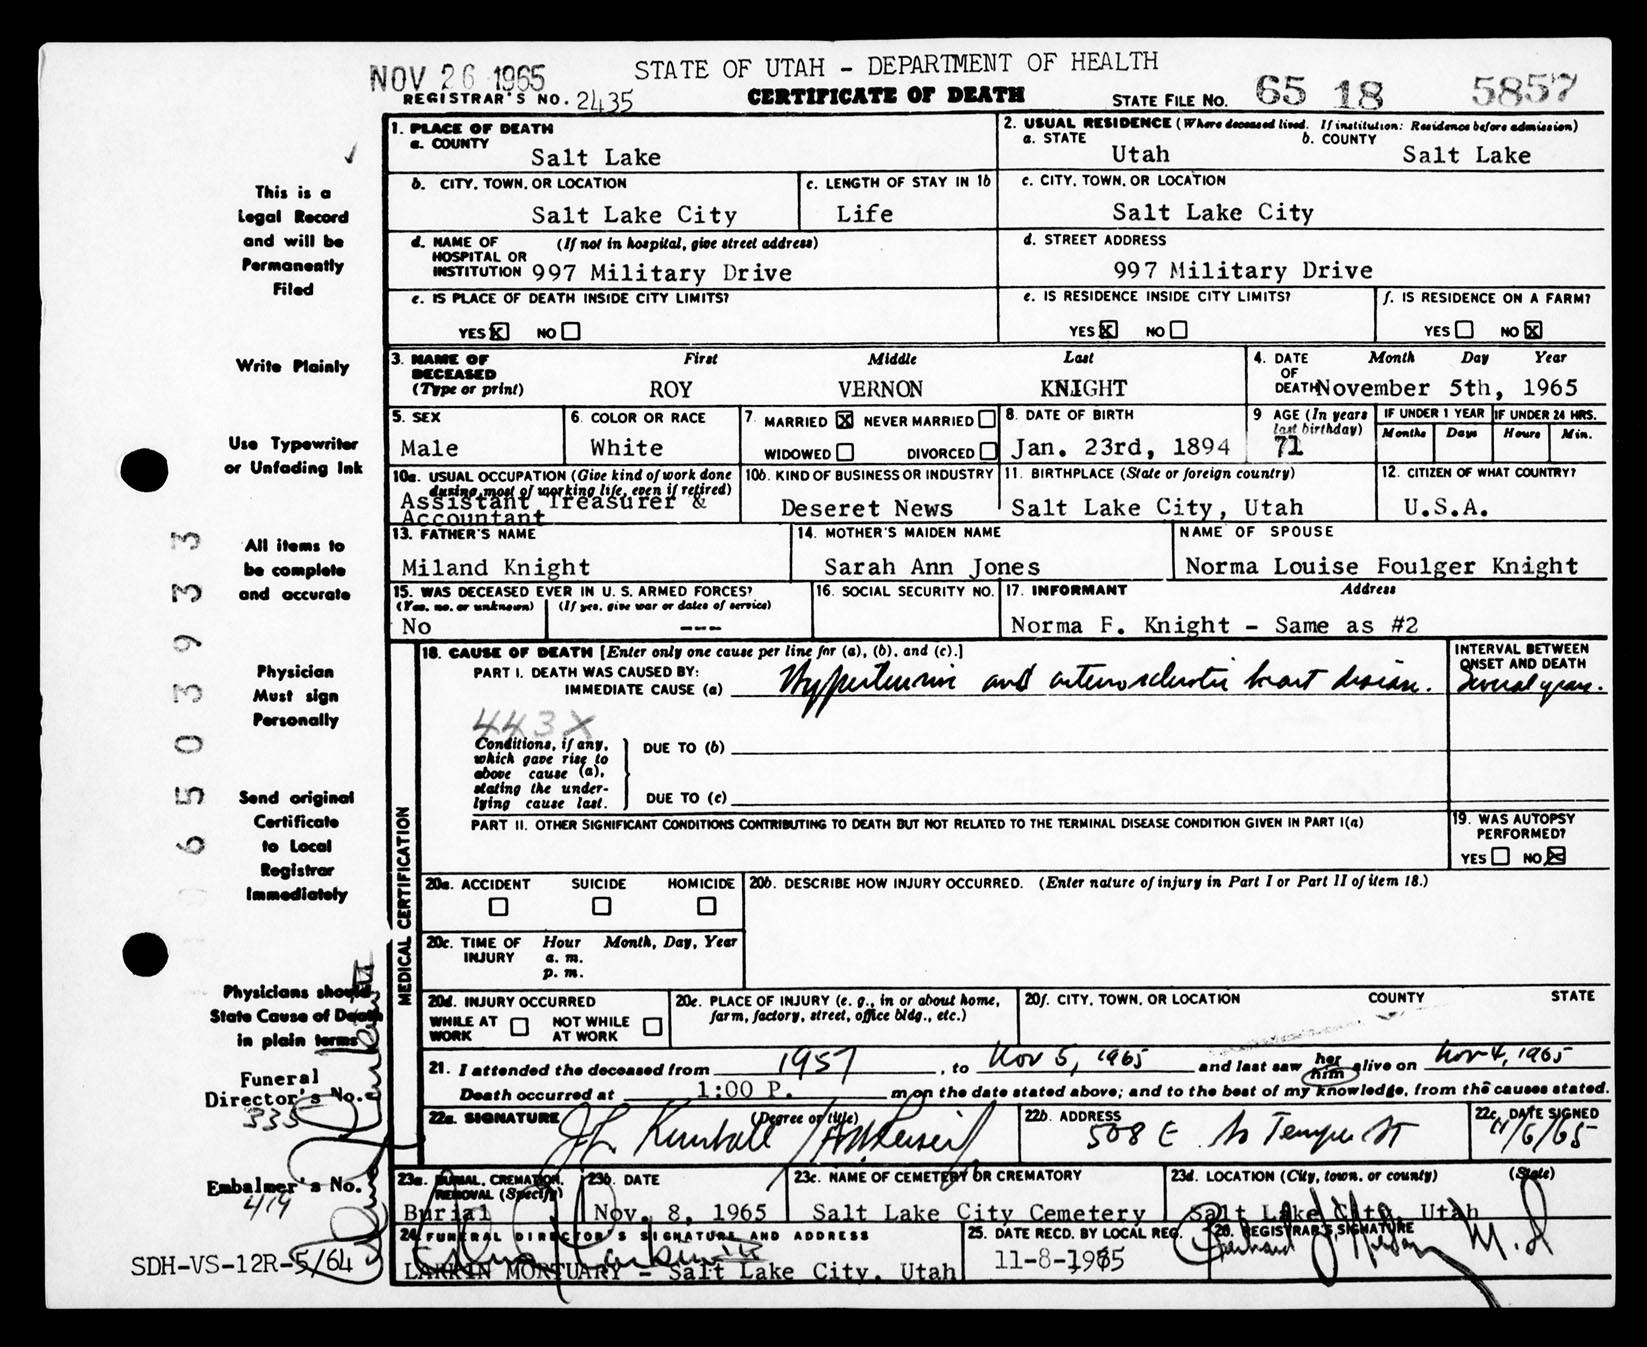 NOV 26 1965
STATE OF UTAH - DEPARTMENT OF HEALTH
REGISTRAR'S NO. 2435
CERTIFICATE OF DEATH
STATE FILE NO. 65 18 5857
This is a
Legal Record
and will be
Permanently
Filed
Write Plainly
Use Typewriter
or Unfading Ink
All items to
be complete
and accurate
Physician
Must sign
Personally
Send original
Certificate
to Local
Registrar
Immediately
Physicians should
State Cause of Death
in plain terms
Funeral
Director's No.
335
Embalmer's No.
419
SDH-VS-12R-5/64
65039333
1. PLACE OF DEATH
a. COUNTY
Salt Lake
2. USUAL RESIDENCE (Where deceased lived. If institution: Residence before admission)
a. STATE
Utah
b. COUNTY
Salt Lake
b. CITY, TOWN, OR LOCATION
Salt Lake City
c. LENGTH OF STAY IN 1b
Life
c. CITY, TOWN, OR LOCATION
Salt Lake City
d. NAME OF HOSPITAL OR INSTITUTION (If not in hospital, give street address)
997 Military Drive
d. STREET ADDRESS
997 Military Drive
e. IS PLACE OF DEATH INSIDE CITY LIMITS?
YES X NO
e. IS RESIDENCE INSIDE CITY LIMITS?
YES X NO
f. IS RESIDENCE ON A FARM?
YES NO X
3. NAME OF DECEASED (Type or print)
First Middle Last
ROY VERNON KNIGHT
4. DATE OF DEATH
Month Day Year
November 5th, 1965
5. SEX
Male
6. COLOR OR RACE
White
7. MARRIED X NEVER MARRIED
WIDOWED DIVORCED
8. DATE OF BIRTH
Jan. 23rd, 1894
9 AGE (In years last birthday)
71
IF UNDER 1 YEAR
Months Days
IF UNDER 24 HRS.
Hours Min.
10a. USUAL OCCUPATION (Give kind of work done during most of working life, even if retired)
Assistant Treasurer &
Accountant
10b. KIND OF BUSINESS OR INDUSTRY
Deseret News
11. BIRTHPLACE (State or foreign country)
Salt Lake City, Utah
12. CITIZEN OF WHAT COUNTRY?
U.S.A.
13. FATHER'S NAME
Miland Knight
14. MOTHER'S MAIDEN NAME
Sarah Ann Jones
NAME OF SPOUSE
Norma Louise Foulger Knight
15. WAS DECEASED EVER IN U. S. ARMED FORCES?
(Yes, no, or unknown) (If yes, give war or dates of service)
No ---
16. SOCIAL SECURITY NO.
17. INFORMANT Address
Norma F. Knight - Same as #2
MEDICAL CERTIFICATION
18. CAUSE OF DEATH [Enter only one cause per line for (a), (b), and (c).]
PART I. DEATH WAS CAUSED BY:
IMMEDIATE CAUSE (a) Hypertensive and arteriosclerotic heart disease.
INTERVAL BETWEEN ONSET AND DEATH
Several years.
443X
Conditions, if any,
which gave rise to
above cause (a),
stating the under-
lying cause last.
DUE TO (b)
DUE TO (c)
PART II. OTHER SIGNIFICANT CONDITIONS CONTRIBUTING TO DEATH BUT NOT RELATED TO THE TERMINAL DISEASE CONDITION GIVEN IN PART I(a)
19. WAS AUTOPSY PERFORMED?
YES NO X
20a. ACCIDENT SUICIDE HOMICIDE
20b. DESCRIBE HOW INJURY OCCURRED. (Enter nature of injury in Part I or Part II of item 18.)
20c. TIME OF INJURY
Hour Month, Day, Year
a. m.
p. m.
20d. INJURY OCCURRED
WHILE AT WORK NOT WHILE AT WORK
20e. PLACE OF INJURY (e. g., in or about home, farm, factory, street, office bldg., etc.)
20f. CITY, TOWN, OR LOCATION COUNTY STATE
21. I attended the deceased from 1957, to Nov 5, 1965 and last saw her him alive on Nov 4, 1965
Death occurred at 1:00 P. m on the date stated above; and to the best of my knowledge, from the causes stated.
22a. SIGNATURE (Degree or title)
J L Kimball
22b. ADDRESS
508 E So Temple St
22c. DATE SIGNED
11/6/65
23a. BURIAL, CREMATION, REMOVAL (Specify)
Burial
23b. DATE
Nov. 8, 1965
23c. NAME OF CEMETERY OR CREMATORY
Salt Lake City Cemetery
23d. LOCATION (City, town, or county) (State)
Salt Lake City, Utah
24. FUNERAL DIRECTOR'S SIGNATURE AND ADDRESS
LARKIN MORTUARY - Salt Lake City, Utah
25. DATE RECD. BY LOCAL REG.
11-8-1965
26. REGISTRAR'S SIGNATURE
M.D